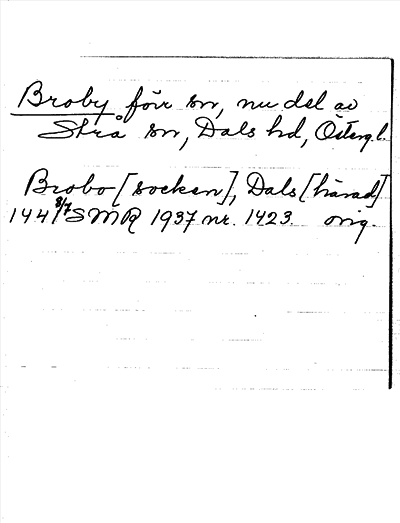 Broby förr sn, nu del av
Strå sn, Dals hd, Österg.l.
Brobo [socken], Dals [härad]
1441 8/7 SMR 1937 nr. 1423. orig.